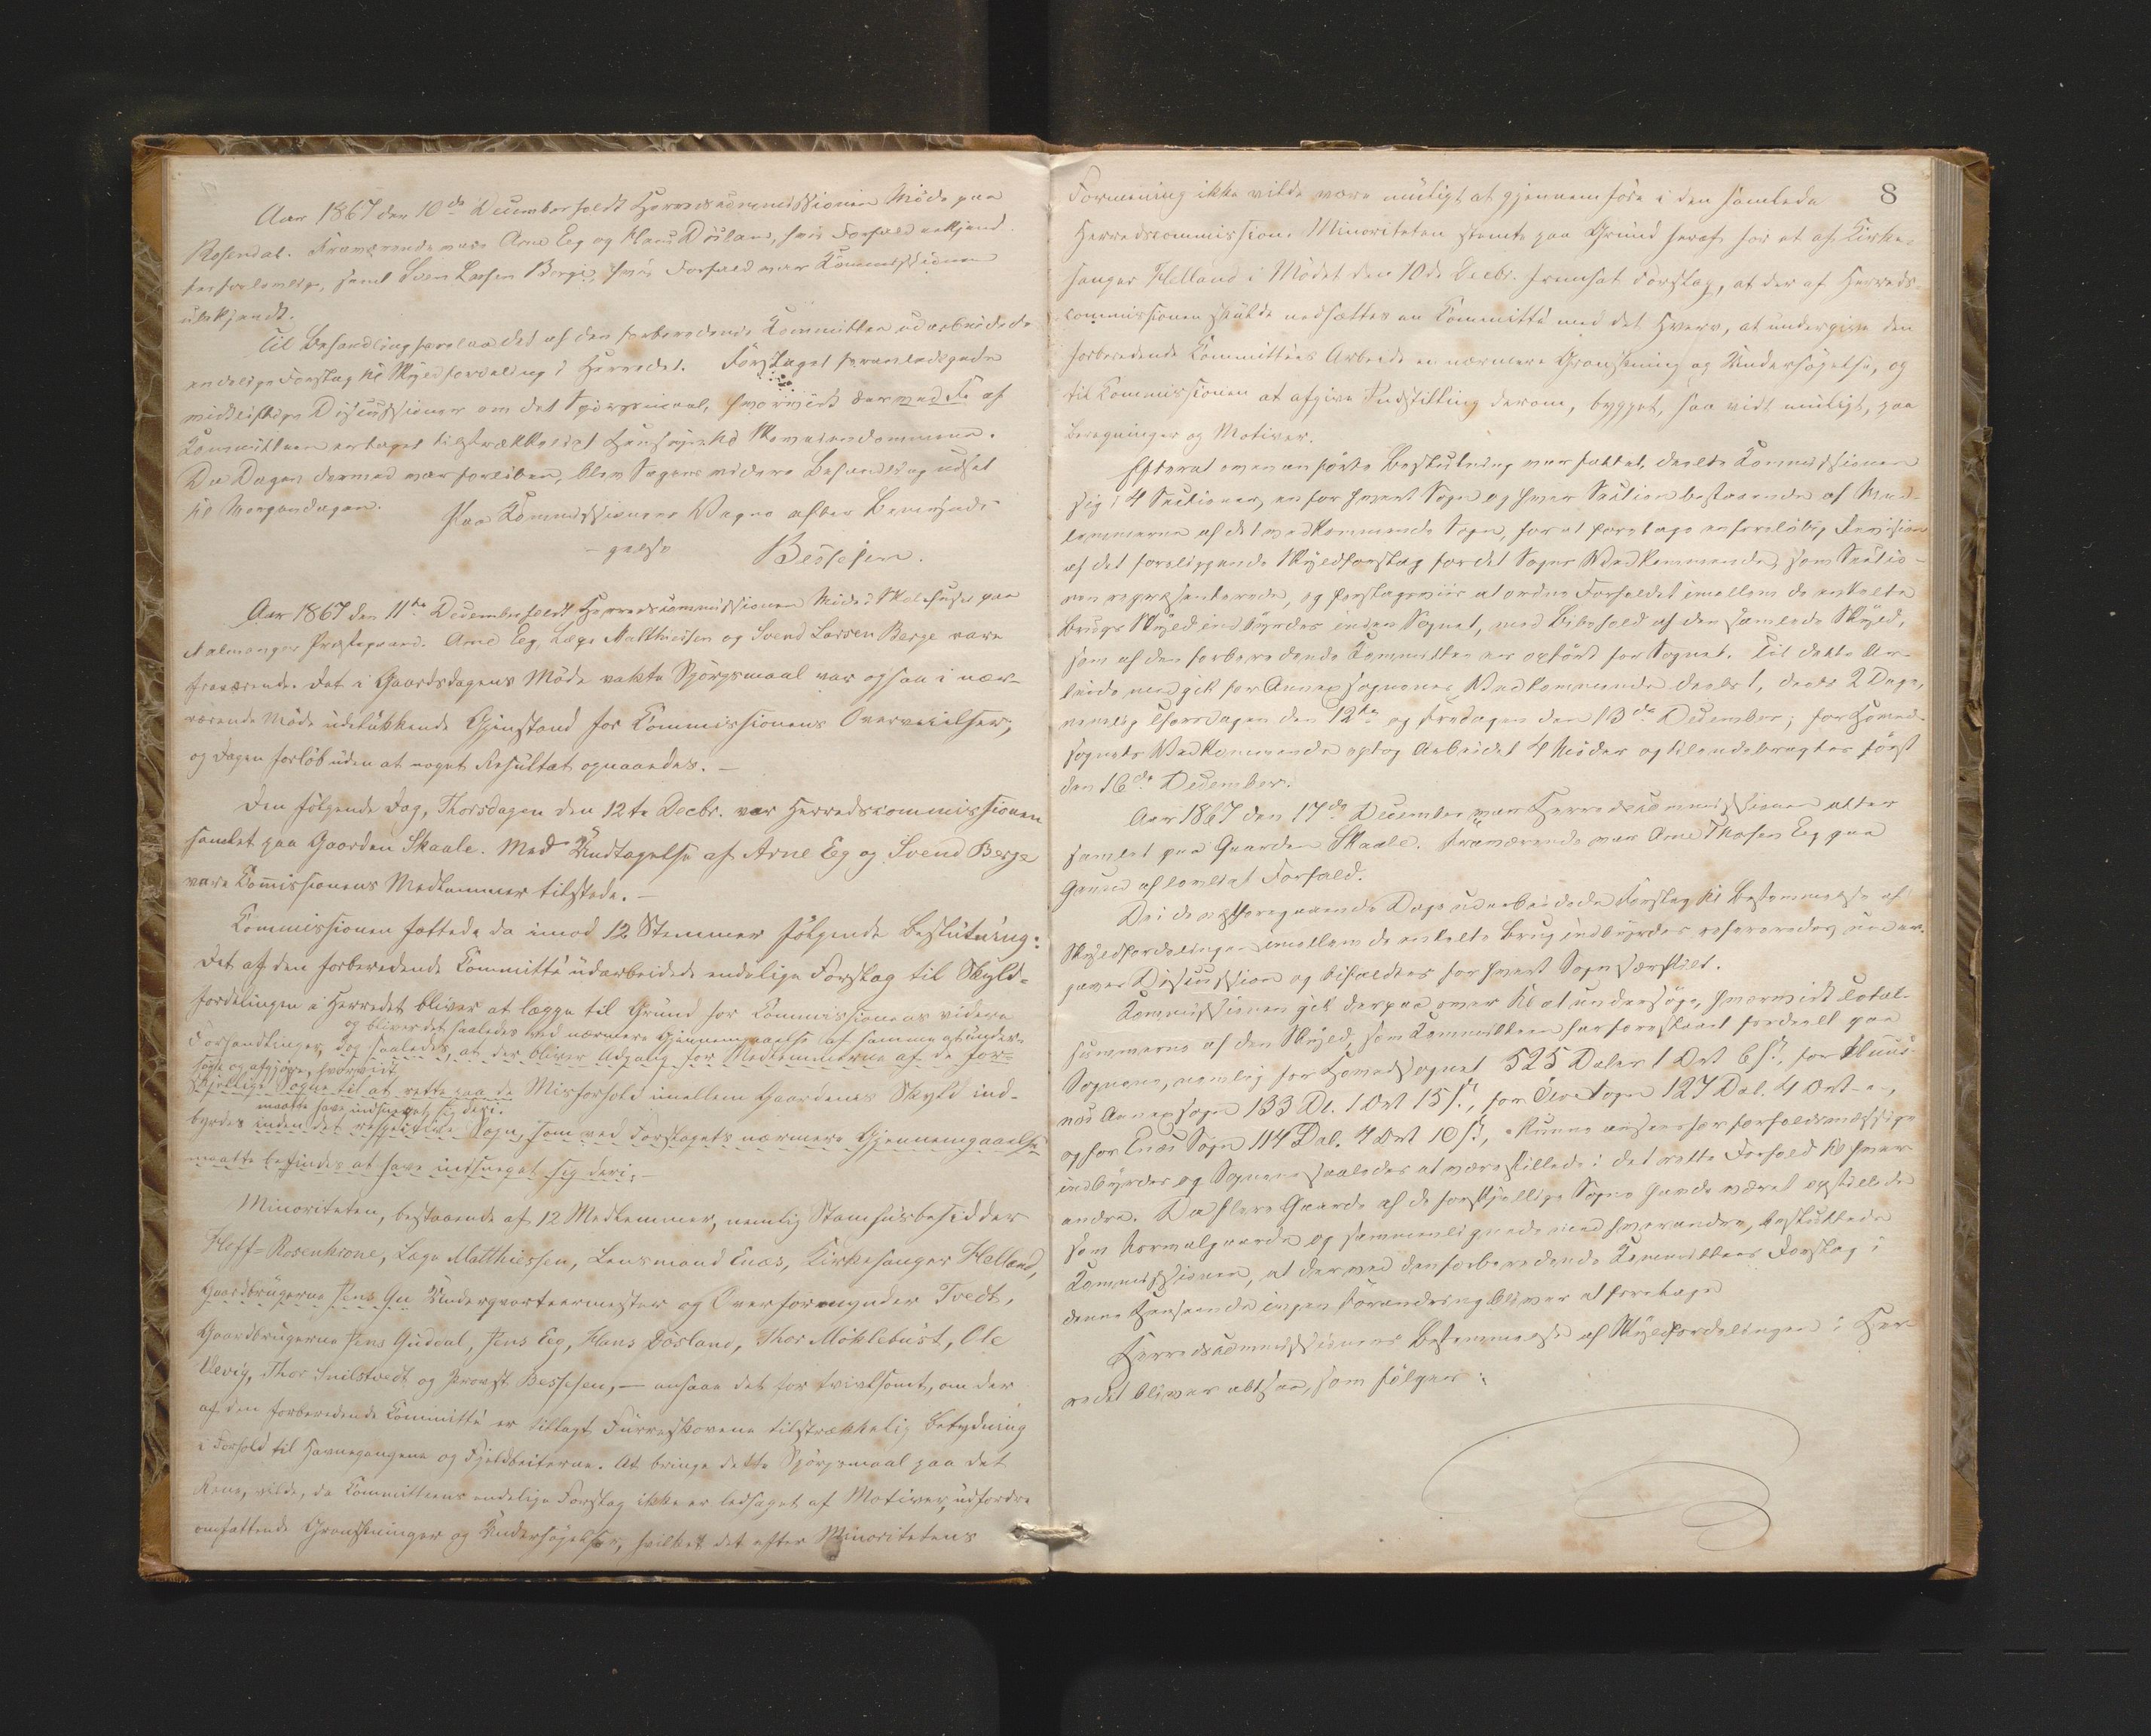 Aar 1867 den 10de December holdt Herredscommissionen Møde paa
Rosendal. Fraværende vare Arne Eeg og Hans Døsland, hvis Forfald ankjend-
tes som lovlige, samt Sven Larsen Berge, hvis Forfald var Kommissionen
ubekjendt.
Til Behandling forelaae det af den forberedende Kommittee udarbeidede
endelige Forslag til Skyldfordeling i Herredet. Forslaget foranledigede
vidtløftige Discussioner om det Spørgsmaal, hvorvidt der med Ft af
Kommitteen er taget tilstrækkeligt Hensyn til Skoveiendommene.
Da Dagen dermed var forløben, blev Sagens videre Behandling udsat
til Morgendagen.
Paa Kommissionens Vegne efter Bemyndi-
- gelse Bessesen.
Aar 1867 den 11te December holdt Herredskommissionen Møde i Skolehuset paa
Malmanger Præstegaard. Arne Eeg, Læge Matthiessen og Svend Larsen Berge vare
fraværende. Det i Gaarsdagens Møde vakte Spørgsmaal var ogsaa i nær-
værende Møde udelukkende Gjenstand for Commissionens Overveielser,
og Dagen forløb uden at noget Resultat opnaaedes. -
Den følgende Dag, Thorsdagen den 12te Decbr. var Herredscommissionen
samlet paa Gaarden Skaale. Med Undtagelse af Arne Eeg og Svend Berge
vare Commissionens Medlemmer tilstede. -
Commissionen fattede da imod 12 Stemmer følgende Beslutning:
Det af den forberedende Committé udarbeidede endelige Forslag til Skyld-
fordelingen i Herredet bliver at lægge til Grund for Commissionens videre
og bliver det saaledes ved nærmere Gjennemgaaelse af samme at under-
Forhandlinger, dog saaledes, at der bliver Adgang for Medlemmerne af de for-
søge og afgjøre, hvorvidt
skjellige Sogne til at rette paa de Misforhold imellem Gaardenes Skyld ind-
maatte have indsneget sig deri.
byrdes inden det respective Sogn, som ved Forslagets nærmere Gjennemgaaelse
maatte befindes at have indsneget sig deri. -
Minoriteten, bestaaende af 12 Medlemmer, nemlig Stamhusbesidder
Hoff-Rosenkrone, Læge Matthiessen, Lensmand Enæs, Kirkesanger Helland,
Gaardbrugerne Jens Gu Underqvarteermester og Overformynder Tvedt,
Gaardbrugerne Jens Guddal, Jens Eeg, Hans Døsland, Thor Møklebust, Ole
Ulevig, Thor Snilstvedt og Provst Bessesen, - ansaae det for tvivlsomt, om der
af den forberedende Committé er tillagt Furreskovene tilstrækkelig Betydning
i Forhold til Havnegangene og Fjeldbeiterne. At bringe dette Spørgsmaal paa det
Rene, vilde, da Committeens endelige Forslag ikke er ledsaget af Motiver, udfordre
omfattende Granskninger og Undersøgelser, hvilket det efter Minoritetens
8
Formening ikke vilde være muligt at gjennemføre i den samlede
Herredscommission. Minoriteten stemte paa Grund heraf for et af Kirke-
sanger Helland i Mødet den 10de Decbr. fremsat Forslag, at der af Herreds-
commissionen skulde nedsættes en Committé med det Hverv, at undergive den
forberedende Committées Arbeide en nærmere Granskning og Undersøgelse, og
til Commissionen at afgive Indstilling derom, bygget, saa vidt muligt, paa
Beregninger og Motiver.
Efterat ovenanførte Beslutning var fattet, deelte Kommissionen
sig i 4 Sectioner, en for hvert Sogn og hver Section bestaaende af Med-
lemmerne af det vedkommende Sogn, for at foretage en foreløbig Revision
af det foreliggende Skyldforslag for det Sogns Vedkommende, som Sectio-
nen repræsenterede, og forslagsviis at ordne Forholdet imellem de enkelte
Brugs Skyld indbyrdes inden Sognet, med Bibehold af den samlede Skyld,
som af den forberedende Kommittee var opført for Sognet. Til dette Ar-
beide medgik for Annexsognenes Vedkommende deels 1, deels 2 Dage,
nemlig Thorsdagen den 12te og Fredagen den 13de December; for Hoved-
sognets Vedkommende optog Arbeidet 4 Møder og tilendebragtes først
den 16de December.
Aar 1867 den 17de December var Herredskommissionen atter
samlet paa Gaarden Skaale. Fraværende var Arne Thosen Eeg paa
Grund af lovligt Forfald.
De i de næstforegaaende Dage udarbeidede Forslag til Bestemmelse af
Skyldfordelingen imellem de enkelte Brug indbyrdes refereredes under-
gaves Discussion og bifaldtes for hvert Sogn særskilt.
Kommissionen gik derpaa over til at undersøge, hvorvidt Total-
summerne af den Skyld, som Kommitteen har foreslaaet fordeelt paa
Sognene, nemlig for Hovedsognet 525 Daler 1 Ort 6 ß, for Huus-
næs Annexsogn 133 Dl. 1 Ort 15 ß, for Ølve Sogn 127 Dal. 4 Ort - -,
og for Enæs Sogn 114 Dal. 4 Ort 10 ß, kunne ansees for forholdsmæssige
indbyrdes og Sognene saaledes at være stillede i det rette Forhold til hver-
andre. Da flere Gaarde af de forskjellige Sogne havde været opstillede
som Normalgaarde og sammenlignede med hverandre, besluttede
Kommissionen, at der ved den forberedende Kommittees Forslag i
denne Henseende ingen Forandring bliver at foretage.
Herredskommissionens Bestemmelse af Skyldfordelingen i Her-
redet bliver altsaa, som følger: